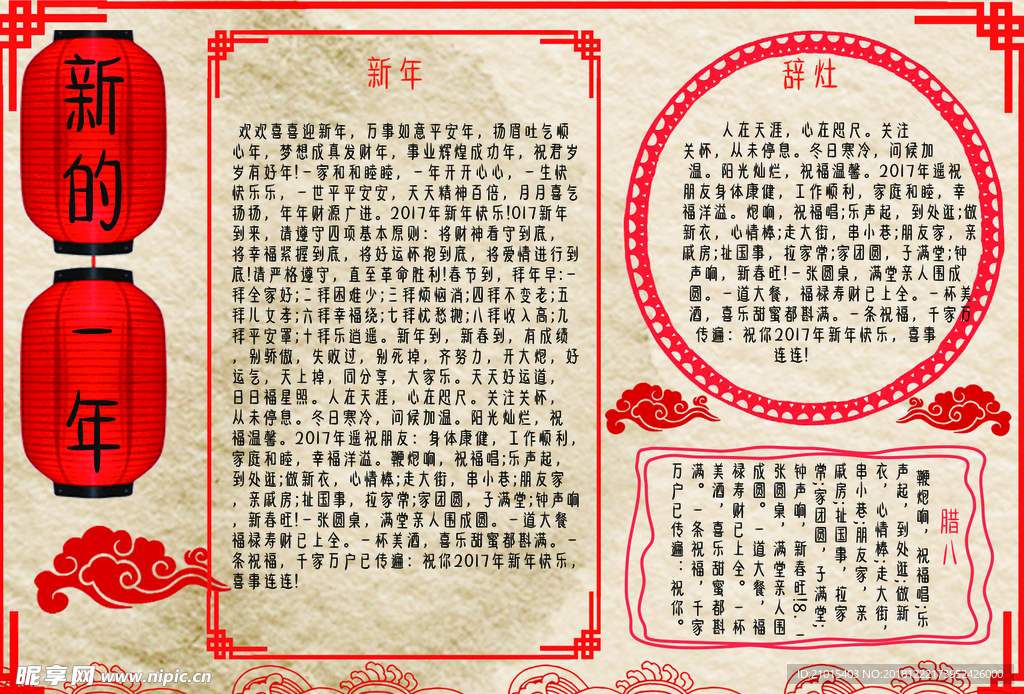 新的
一年
新年
欢欢喜喜迎新年，万事如意平安年，扬眉吐气顺
心年，梦想成真发财年，事业辉煌成功年，祝君岁
岁有好年!一家和和睦睦，一年开开心心，一生快
快乐乐，一世平平安安，天天精神百倍，月月喜气
扬扬，年年财源广进。2017年新年快乐!017新年
到来，请遵守四项基本原则：将财神看守到底，
将幸福紧握到底，将好运怀抱到底，将爱情进行到
底!请严格遵守，直至革命胜利!春节到，拜年早:一
拜全家好;二拜困难少;三拜烦恼消;四拜不变老;五
拜儿女孝;六拜幸福绕;七拜忧愁抛;八拜收入高;九
拜平安罩;十拜乐逍遥。新年到，新春到，有成绩
，别骄傲，失败过，别死掉，齐努力，开大炮，好
运气，天上掉，同分享，大家乐。天天好运道，
日日福星照。人在天涯，心在咫尺。关注关怀，
从未停息。冬日寒冷，问候加温。阳光灿烂，祝
福温馨。2017年遥祝朋友：身体康健，工作顺利，
家庭和睦，幸福洋溢。鞭炮响，祝福唱;乐声起，
到处逛;做新衣，心情棒;走大街，串小巷;朋友家
，亲戚房;扯国事，拉家常;家团圆，子满堂;钟声响
，新春旺!一张圆桌，满堂亲人围成圆。一道大餐
福禄寿财已上全。一杯美酒，喜乐甜蜜都斟满。一
条祝福，千家万户已传遍：祝你2017年新年快乐，
喜事连连!
辞灶
人在天涯，心在咫尺。关注
关怀，从未停息。冬日寒冷，问候加
温。阳光灿烂，祝福温馨。2017年遥祝
朋友身体康健，工作顺利，家庭和睦，幸
福洋溢。炮响，祝福唱;乐声起，到处逛;做
新衣，心情棒;走大街，串小巷;朋友家，亲
戚房;扯国事，拉家常;家团圆，子满堂;钟
声响，新春旺!一张圆桌，满堂亲人围成
圆。一道大餐，福禄寿财已上全。一杯美
酒，喜乐甜蜜都斟满。一条祝福，千家万
传遍：祝你2017年新年快乐，喜事
连连!
腊八
鞭炮响，祝福唱;乐
声起，到处逛;做新
衣，心情棒;走大街，
串小巷;朋友家，亲
戚房;扯国事，拉家
常;家团圆，子满堂;
钟声响，新春旺!8.一
张圆桌，满堂亲人围
成圆。一道大餐，福
禄寿财已上全。一杯
美酒，喜乐甜蜜都斟
满。一条祝福，千家
万户已传遍：祝你。
昵享网 www.nipic.cn
ID:21015403 NO:20161222173952426000